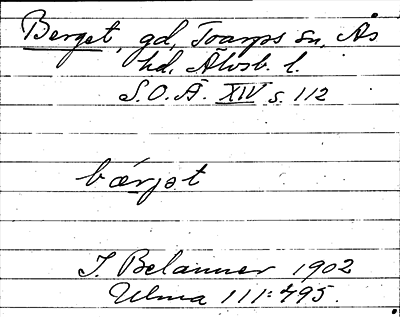 Berget, gd, Toarps sn, Ås
hd, Älvsb. l.
S.O.Ä. XIV s. 112
bærjət
J. Belanner 1902
Ulma 111:495.